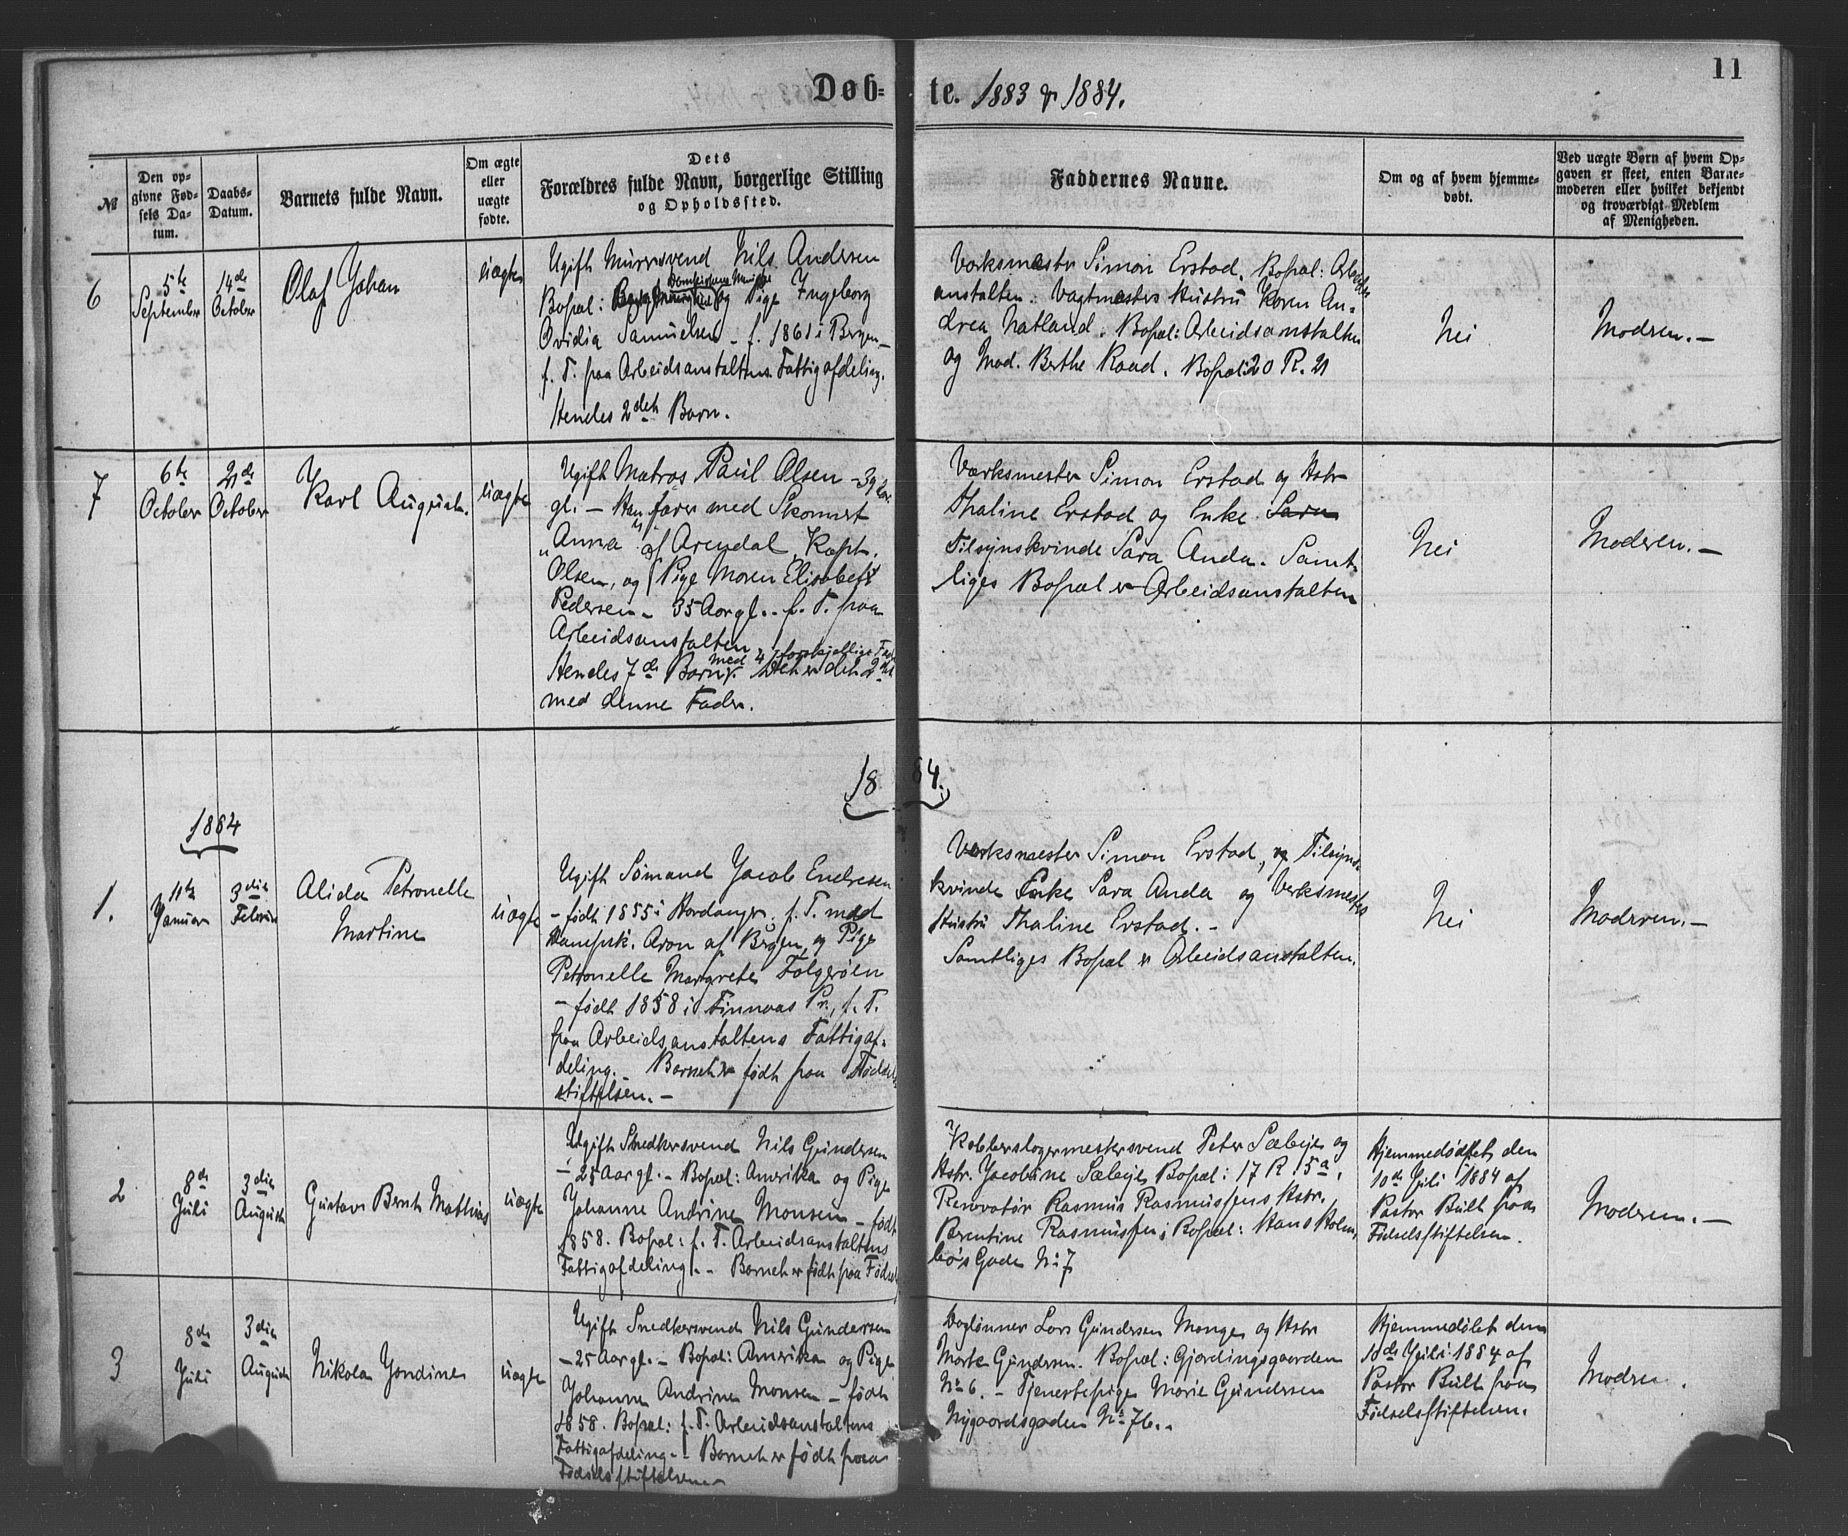 11
Døb- te. 1883 & 1884.
№
Den op-
givne Fød-
sels Da-
tum.
Daabs-
Datum.
Barnets fulde Navn.
Om ægte
eller
uægte
fødte.
Dets
Forældres fulde Navn, borgerlige Stilling
og Opholdssted.
Faddernes Navne.
Om og af hvem hjemme-
døbt.
Ved uægte Børn af hvem Op-
gaven er skeet, enten Barne-
moderen eller hvilket bekjendt
og troværdigt Medlem
af Menigheden.
6
5te
September
14de
October
Olaf Johan
uægte
Ugift Murersvend Nils Andersen
Bopæl: og Pige Ingeborg
Ovidia Samuelsen – f. 1861 i Bergen –
f. T. paa Arbeidsanstaltens Fattigafdeling.
Hendes 2det Barn.
Værksmester Simon Erstad. Bopæl: Arbeids
anstalten: Vagtmesters Hustru Karen An-
drea Natland. Bopæl: Arbeidsanstalten
og Mad. Berthe Raad. Bopæl: 20 R. 21
Nei
Modren. –
7
6te
October
21de
October
Karl August.
uægte
Ugift Matros Paul Olsen – 39 Aar
gl. – Han farer med Skonnert
"Anna" af Arendal, Kapt.
Olsen, og Pige Maren Elisabeth
Pedersen – 35 Aar gl. – f. T. paa
Arbeidsanstalten.
Hendes 7de Barn med 4 forskjellige
med denne Fader.
Værksmester Simon Erstad og Hstr
Thaline Erstad og Enke Sara
Tilsynskvinde Sara Anda. Samt-
liges Bopæl er Arbeidsanstalten
Nei
Moderen. –
1884.
1884
1.
11te
Januar
3die
Februar
Alida Petronelle
Martine
uægte
Ugift Sømand Jacob Endresen
– født 1855 i Hardanger. f. T. med
Dampsk. Aron af Bergen, og Pige
Petronelle Margrete Folgerøen
– født 1858 i Finnaas Pr., f. T.
paa Arbeidsanstaltens Fattigaf-
deling. – Barnet er født paa Fødsels
stiftelsen. –
Værksmester Simon Erstad, og Tilsyns-
kvinde Enke Sara Anda og Værksmesters
Hustru Thaline Erstad. –
Samtliges Bopæl er Arbeidsanstalten.
Nei
Moderen. –
2
8de
Juli
3die
August
Gustav Bernt Mathias
uægte
Ugift Snedkersvend Nils Gundersen
– 25 Aar gl. – Bopæl: Amerika og Pige
Johanne Andrine Monsen – født
1858. Bopæl: f. T. Arbeidsanstaltens
Fattigafdeling. – Barnet er født paa Fødsels
Kobberslagermestersvend Peter Sæbeje og
Hstr. Jacobine Sæbeje, Bopæl: 17 R 15a,
Renovatør Rasmus Rasmussens Hstr.
Berentine Rasmussen; Bopæl: Hans Holm
boes Gade N: 7
Hjemmedøbt den
10de Juli 1884 af
Pastor Bull paa
Fødselsstiftelsen.
Modren. –
3
8de
Juli
3die
August
Nikola Jondine
uægte
Ugift Snedkersvend Nils Gundersen
– 25 Aar gl. – Bopæl: Amerika og Pige
Johanne Andrine Monsen – født
1858. Bopæl: f. T. Arbeidsanstaltens
Fattigafdeling – Barnet er født paa
Fødselsstiftelsen
Daglønner Lars Gundersen Monge og Hstr
Marte Gundersen. Bopæl: Gjørdingsgaarden
N: 6. – Tjenestepige Marie Gundersen
Nygaardsgaden N: 76. –
Hjemmedøbt den
10de Juli 1884 af
Pastor Bull paa
Fødselsstiftelsen.
Modren.